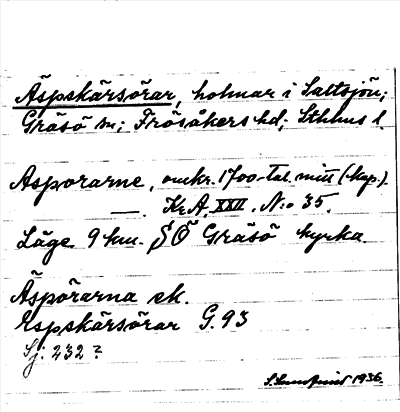 Äspskärsörar, holmar i Saltsjön;
Gräsö sn; Frösåkers hd; Sthlms l.
Asporarne, omkr. 1700-tal. mitt (kop.).
— KrA. XXII. N:o 35.
Läge 9 km. SÖ Gräsö kyrka.
Äspörarna ek.
Espskärsörar G. 93
Sj: 232?
1936.